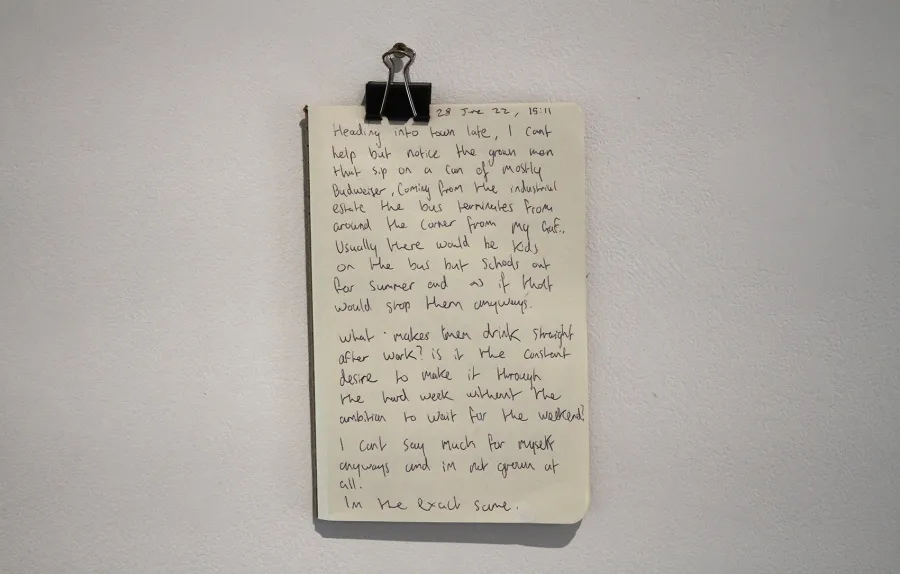 28 June 22, 15:11
Heading into town late, I cant
help but notice the grown men
that sip on a can of mostly
Budweiser, Coming from the industrial
estate the bus terminates from
around the corner from my Gaf.
Usually there would be kids
on the bus but schools out
for summer and as if that
would stop them anyways.
what makes them drink straight
after work? is it the constant
desire to make it through
the hard week without the
ambition to wait for the weekend?
I cant say much for myself
anyways and im not grown at
all.
Im the exact same.